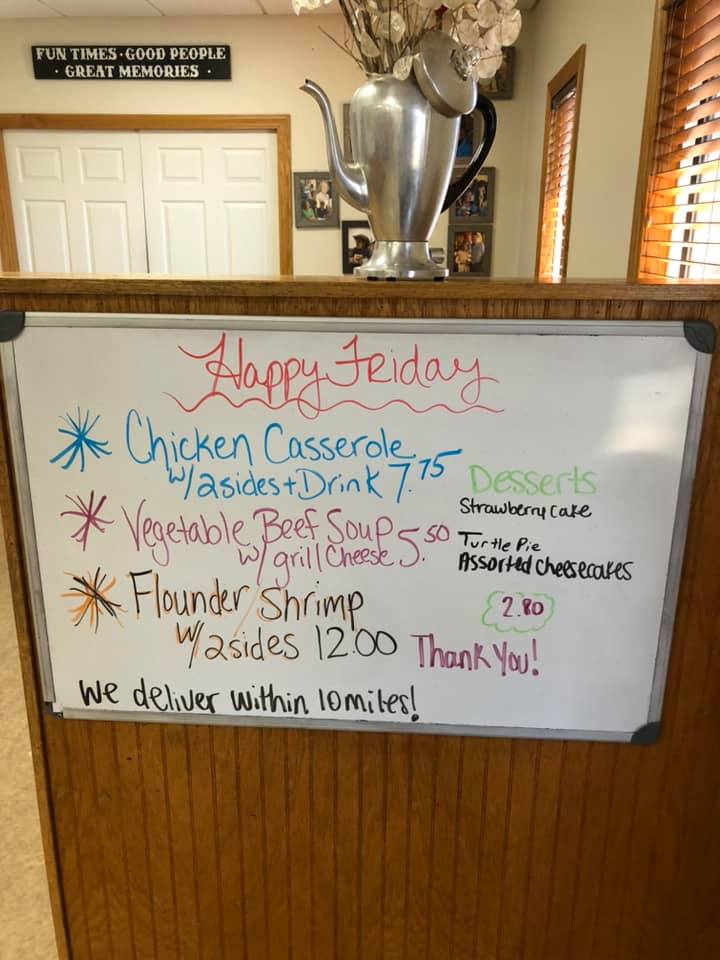 FUN TIMES · GOOD PEOPLE
· GREAT MEMORIES ·
Happy Friday
Chicken Casserole
w/2sides+Drink 7.75
Vegetable Beef Soup
w/grill Cheese 5.50
Flounder/Shrimp
w/2sides 12.00
Desserts
Strawberry Cake
Turtle Pie
Assorted cheesecakes
2.80
Thank You!
We deliver within 10miles!